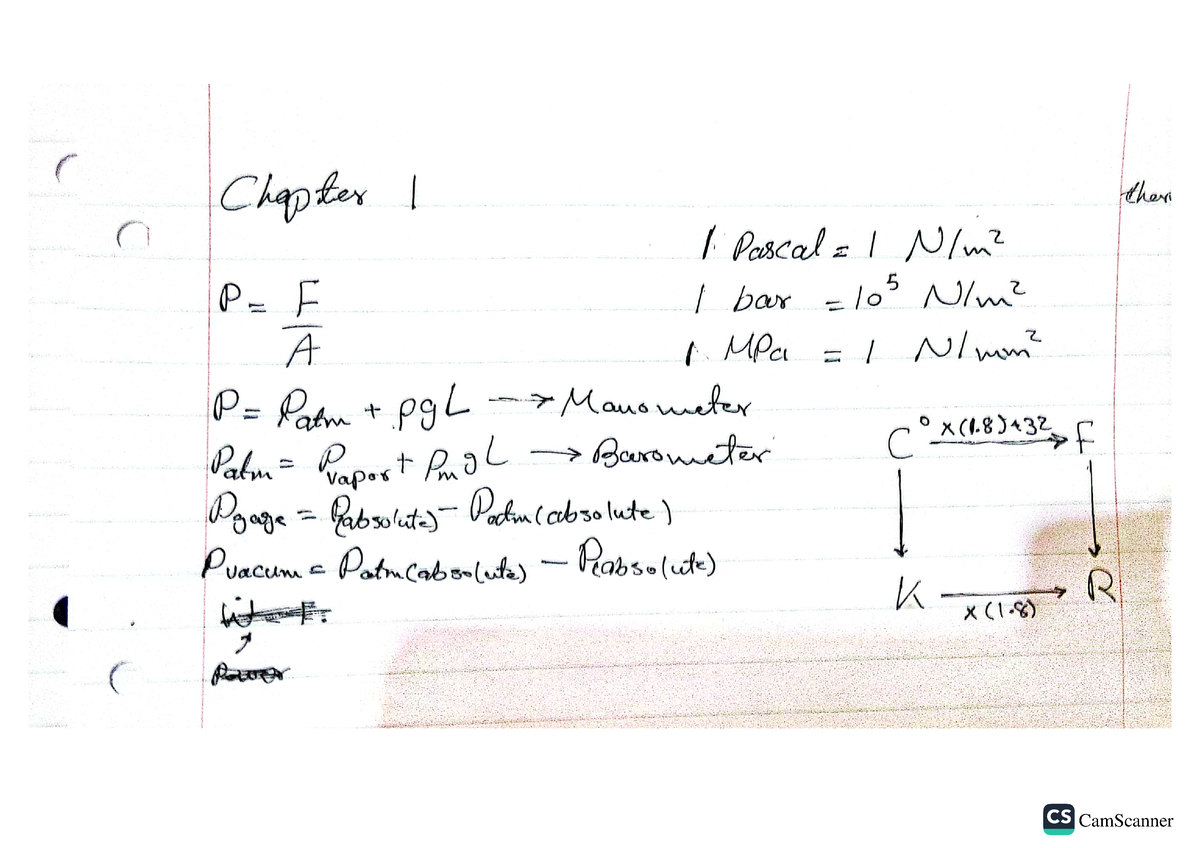 Chapter 1
ther
1 Pascal = 1 N/m²
P = F/A
1 bar = 10⁵ N/m²
1 MPa = 1 N/mm²
P = Patm + ρgL → Manometer
C° x(1.8)+32 → F
Patm = Pvapor + ρm g L → Barometer
Pgage = P(absolute) - Patm(absolute)
Pvacum = Patm(absolute) - P(absolute)
K x(1.8) → R
Power
CS CamScanner